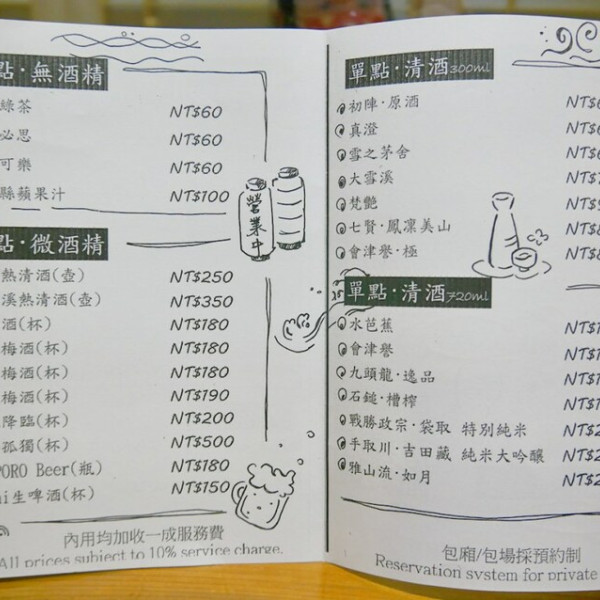 點·無酒精
綠茶 NT$60
必思 NT$60
可樂 NT$60
縣蘋果汁 NT$100
營業中
點·微酒精
熱清酒(壺) NT$250
溪熱清酒(壺) NT$350
酒(杯) NT$180
梅酒(杯) NT$180
梅酒(杯) NT$180
梅酒(杯) NT$190
降臨(杯) NT$200
孤獨(杯) NT$500
PORO Beer(瓶) NT$180
hi生啤酒(杯) NT$150
內用均加收一成服務費
All prices subject to 10% service charge.
單點·清酒300ml
初陣·原酒 NT$
真澄 NT$
雪之茅舍 NT$
大雪溪 NT$
梵艷 NT$
七賢·鳳凛美山 NT$
會津譽·極 NT$
單點·清酒720ml
水芭蕉 NT$
會津譽 NT$
九頭龍·逸品 NT$
石鎚·槽榨 NT$
戰勝政宗·袋取 特別純米 NT$
手取川·吉田藏 純米大吟釀 NT$
雅山流·如月 NT$
包廂/包場採預約制
Reservation system for private